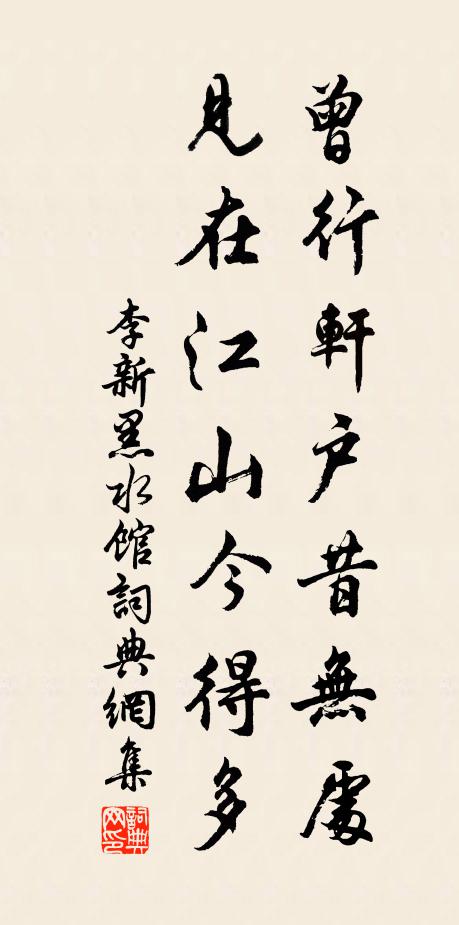 曾行軒户昔無處
見在江山今得多
李新黑水館詞典網集
詞典网印